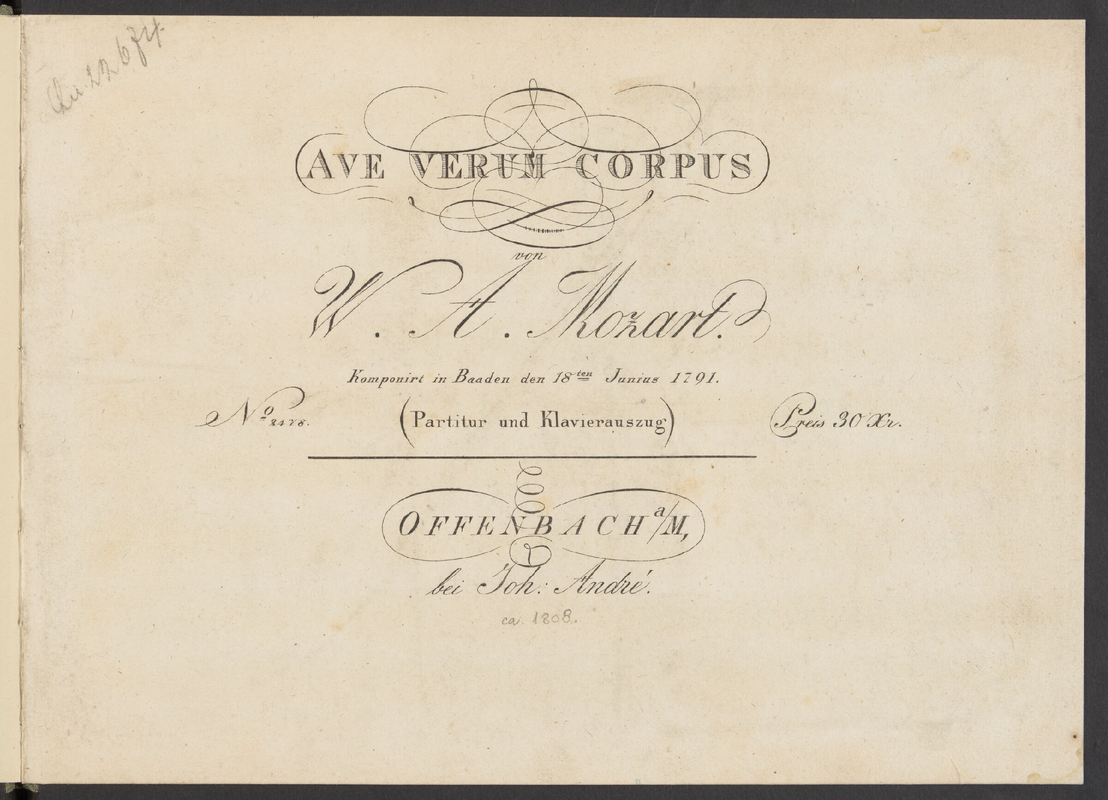 AVE VERUM CORPUS
von
W. A. Mozart.
Komponirt in Baaden den 18ten Junius 1791.
No
(Partitur und Klavierauszug)
Preis 30 Xr.
OFFENBACH a/M,
bei Joh: André.
ca. 1808.